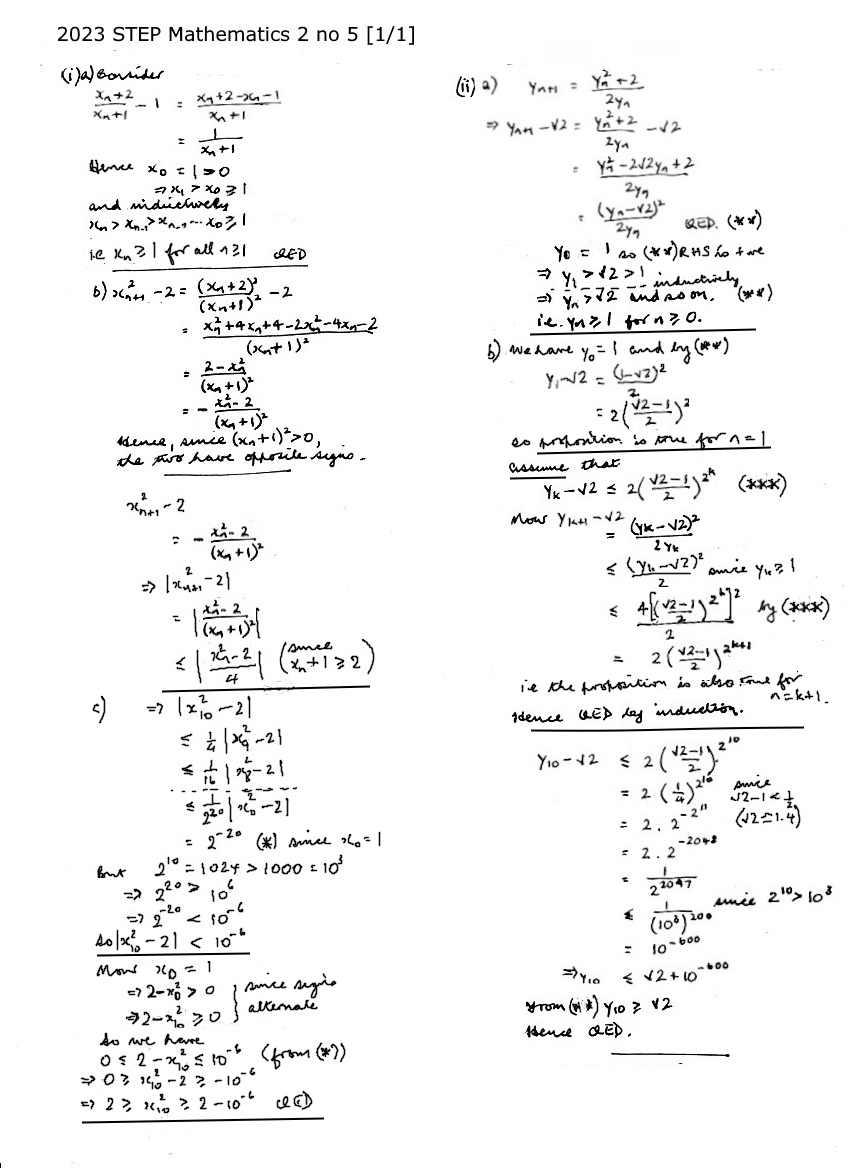 2023 STEP Mathematics 2 no 5 [1/1]
(i) a) Consider
(xₙ+2)/(xₙ+1) − 1 = (xₙ+2−xₙ−1)/(xₙ+1)
= 1/(xₙ+1)
Hence x₀ = 1 > 0
⇒ x₁ > x₀ ≥ 1
and inductively
xₙ > xₙ₋₁ > xₙ₋₂ ... x₀ ≥ 1
i.e. xₙ ≥ 1 for all n ≥ 1 QED
b) xₙ₊₁² − 2 = (xₙ+2)²/(xₙ+1)² − 2
= (xₙ²+4xₙ+4−2xₙ²−4xₙ−2)/(xₙ+1)²
= (2−xₙ²)/(xₙ+1)²
= − (xₙ²−2)/(xₙ+1)²
Hence, since (xₙ+1)² > 0,
the two have opposite signs.
xₙ₊₁² − 2
= − (xₙ²−2)/(xₙ+1)²
⇒ |xₙ₊₁² − 2|
= |(xₙ²−2)/(xₙ+1)²|
≤ |(xₙ²−2)/4| (since xₙ+1 ≥ 2)
c) ⇒ |x₁₀² − 2|
≤ 1/4 |x₉² − 2|
≤ 1/16 |x₈² − 2|
≤ 1/2²⁰ |x₀² − 2|
= 2⁻²⁰ (*) since x₀ = 1
But 2¹⁰ = 1024 > 1000 = 10³
⇒ 2²⁰ > 10⁶
⇒ 2⁻²⁰ < 10⁻⁶
So |x₁₀² − 2| < 10⁻⁶
Now x₀ = 1
⇒ 2−x₀² > 0 } since signs
⇒ 2−x₁₀² ≥ 0 } alternate
So we have
0 ≤ 2 − x₁₀² ≤ 10⁻⁶ (from (*))
⇒ 0 ≥ x₁₀² − 2 ≥ −10⁻⁶
⇒ 2 ≥ x₁₀² ≥ 2 − 10⁻⁶ QED
(ii) a) yₙ₊₁ = (yₙ²+2)/2yₙ
⇒ yₙ₊₁ − √2 = (yₙ²+2)/2yₙ − √2
= (yₙ² − 2√2yₙ + 2)/2yₙ
= (yₙ−√2)²/2yₙ QED. (**)
y₀ = 1 so (**) RHS is +ve
⇒ y₁ > √2 > 1 inductively
⇒ yₙ > √2 and so on. (**)
i.e. yₙ ≥ 1 for n ≥ 0.
b) We have y₀ = 1 and by (**)
y₁−√2 = (1−√2)²/2
= 2((√2−1)/2)²
so proposition is true for n = 1
Assume that
yₖ − √2 ≤ 2((√2−1)/2)^(2^k) (***)
Now yₖ₊₁ − √2 = (yₖ−√2)²/2yₖ
≤ (yₖ−√2)²/2 since yₖ ≥ 1
≤ 4[((√2−1)/2)^(2^k)]²/2 by (***)
= 2((√2−1)/2)^(2^(k+1))
i.e the proposition is also true for
n = k+1.
Hence QED by induction.
y₁₀ − √2 ≤ 2((√2−1)/2)^(2^10)
= 2(1/4)^(2^10) since √2−1 < 1/2
= 2.2^(−2^11) (√2≏1.4)
= 2.2⁻²⁰⁴⁸
= 1/2²⁰⁴⁷
≤ 1/(10³)²⁰⁰ since 2¹⁰ > 10³
= 10⁻⁶⁰⁰
⇒ y₁₀ ≤ √2 + 10⁻⁶⁰⁰
From (**) y₁₀ ≥ √2
Hence QED.